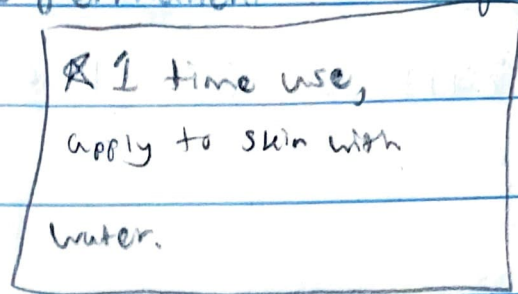 1 time use,
apply to skin with
water.